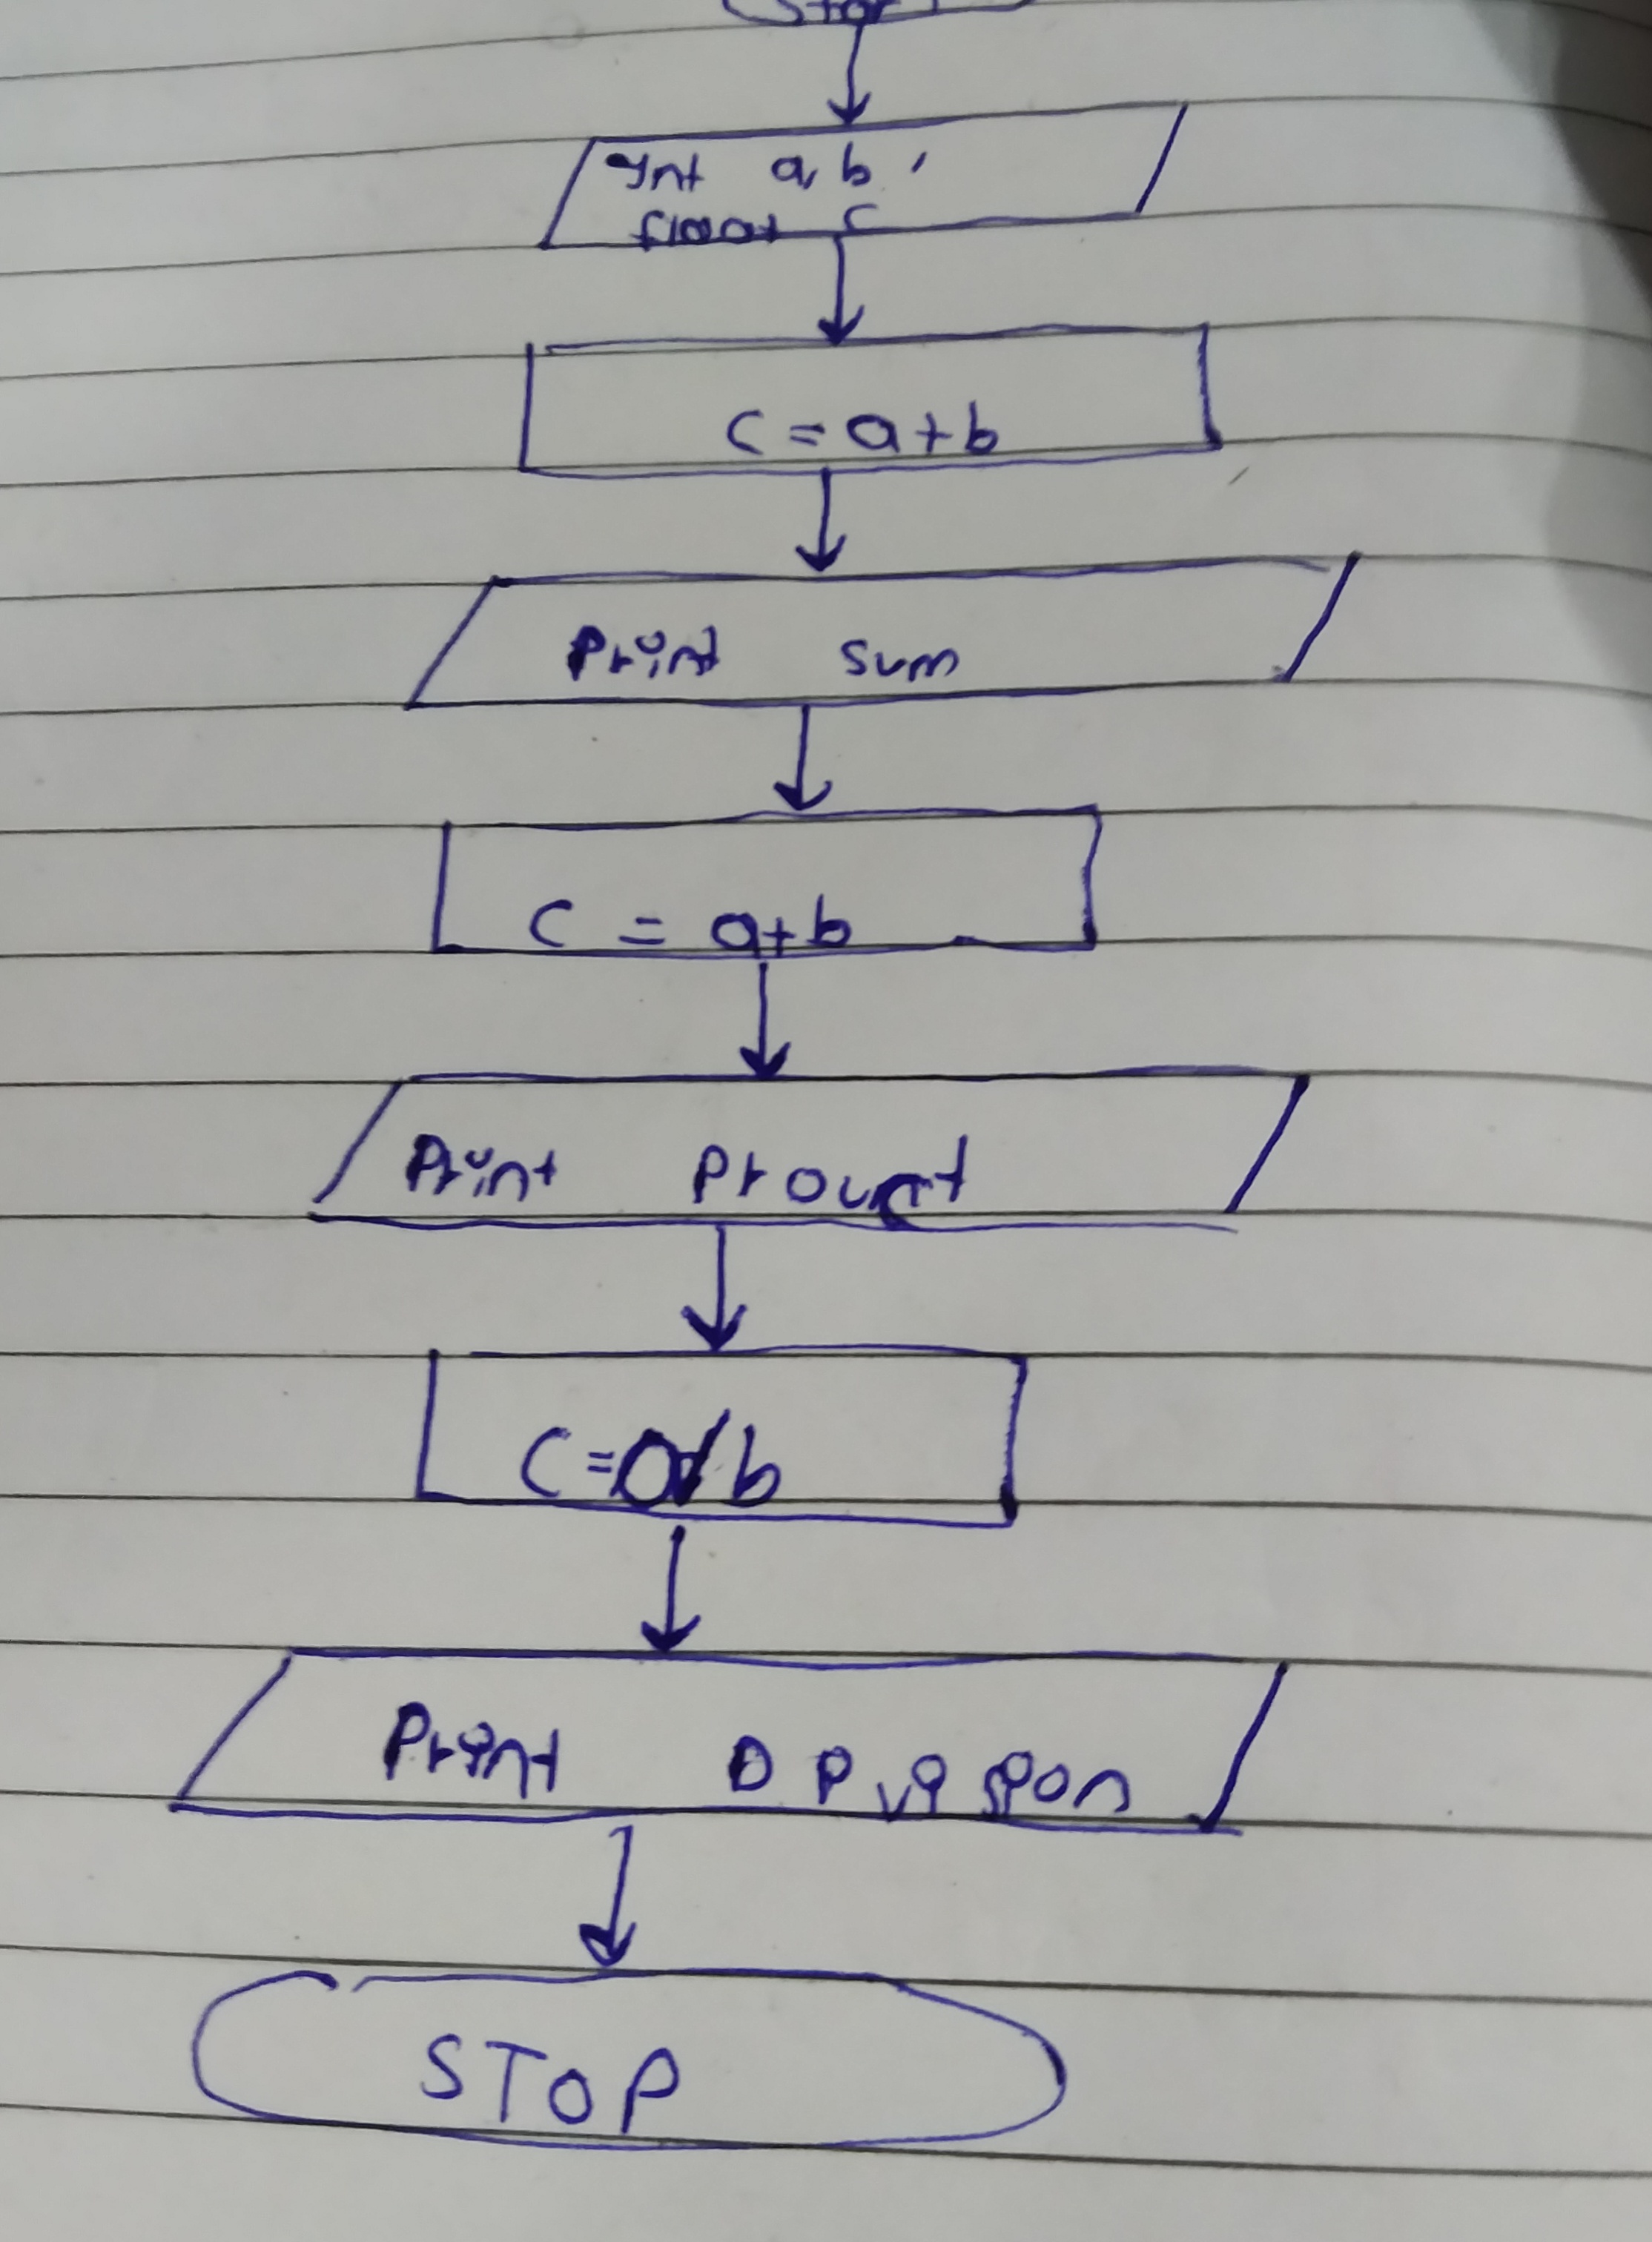 Start
Int a, b,
float c
C = a + b
Print sum
C = a+b
Print Prouct
C = a/b
Print Division
STOP